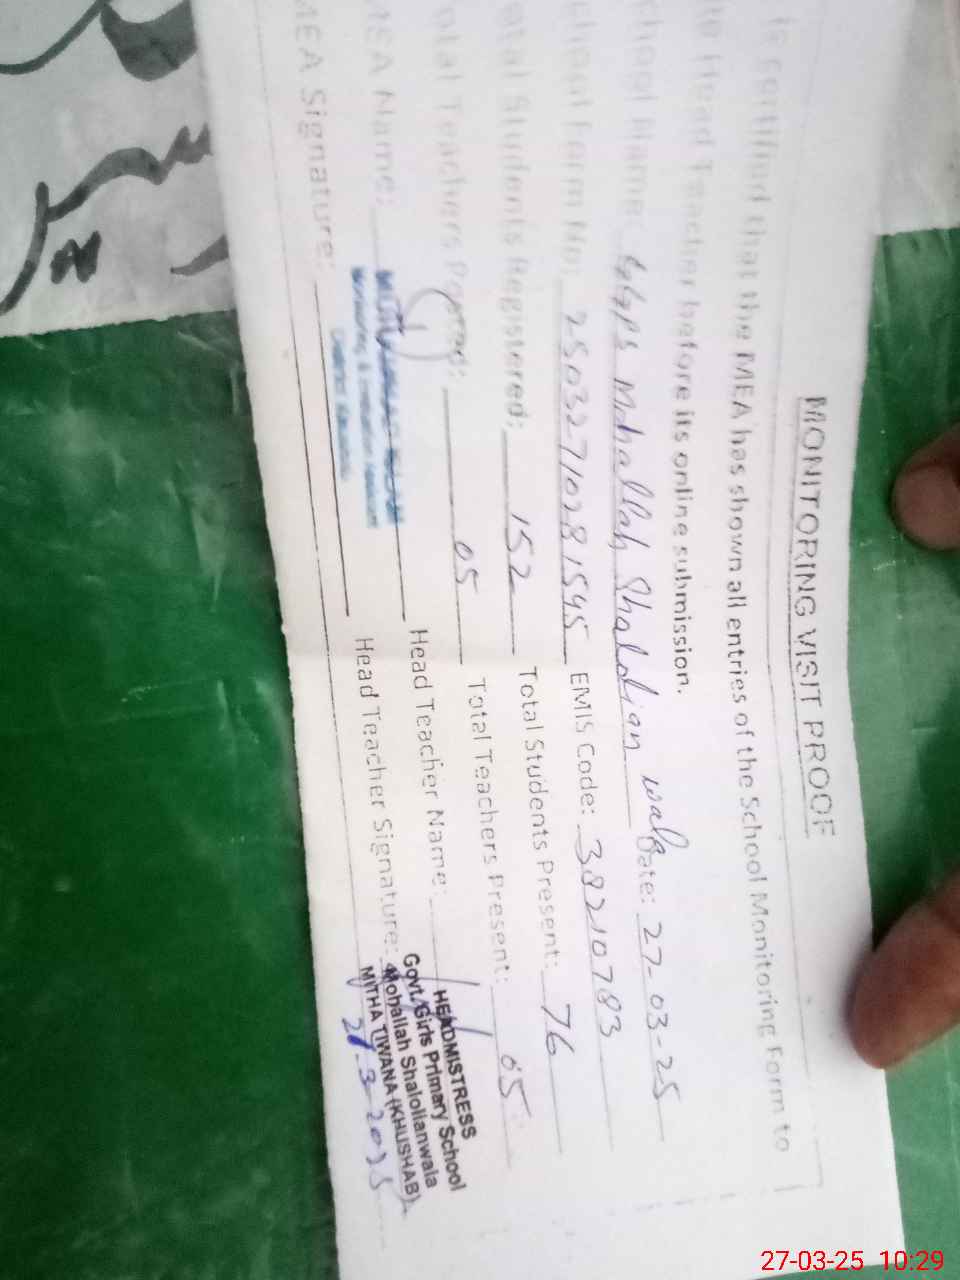 MONITORING VISIT PROOF
is certified that the MEA has shown all entries of the School Monitoring Form to
Head Teacher before its online submission.
Name: GGPS Mohallah Shalolian wala Date: 27-03-25
Form No: 25032710281545 EMIS Code: 38210783
Students Registered: 152 Total Students Present: 76
otal Teachers Posted: 05 Total Teachers Present: 05
MEA Name: Head Teacher Name:
MEA Signature: Head Teacher Signature:
HEADMISTRESS
Govt. Girls Primary School
Mohallah Shalolianwala
MITHA TIWANA (KHUSHAB)
3-2025
27-03-25 10:29